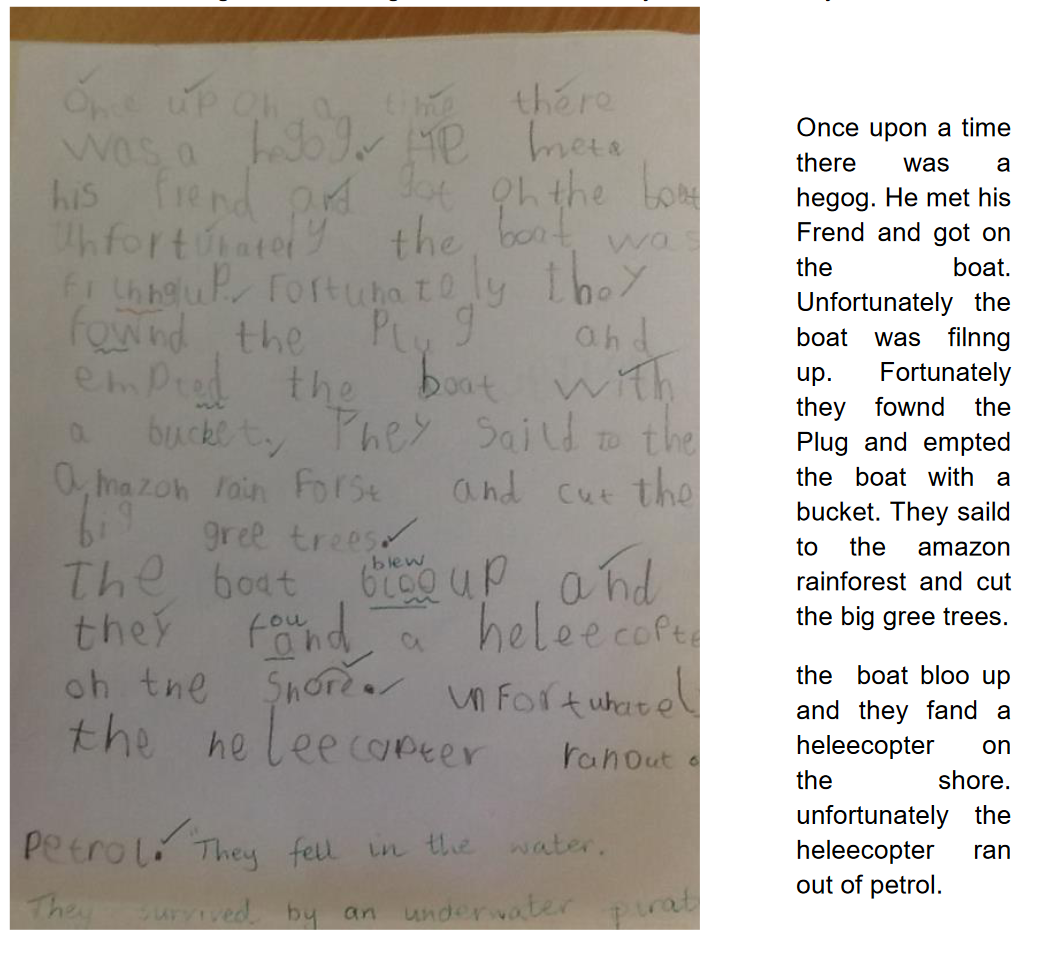 Once up on a time there
was a hegog. He mets
his friend and got on the boat
Unfortunately the boat was
filnngup. Fortunately they
fownd the Plug and
empted the boat with
a bucket. They saild to the
amazon rain forst and cut the
big gree trees.
blew
The boat bloo up and
ou
they fand a heleecopte
on the Shore. unfortunatel
the heleecopter ranout o
petrol. They fell in the water.
They survived by an underwater pirat
Once upon a time
there was a
hegog. He met his
Frend and got on
the boat.
Unfortunately the
boat was filnng
up. Fortunately
they fownd the
Plug and empted
the boat with a
bucket. They saild
to the amazon
rainforest and cut
the big gree trees.
the boat bloo up
and they fand a
heleecopter on
the shore.
unfortunately the
heleecopter ran
out of petrol.